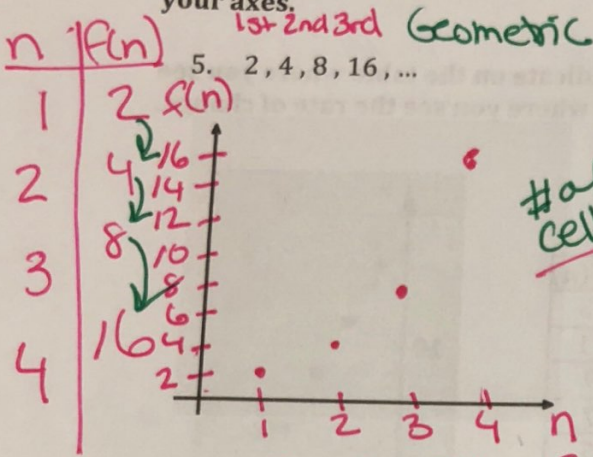 your axes.
1st 2nd 3rd Geometric
n f(n)
5. 2, 4, 8, 16, ...
1 2
2 4
3 8
4 16
f(n)
16
14
12
10
8
6
4
2
1 2 3 4 n